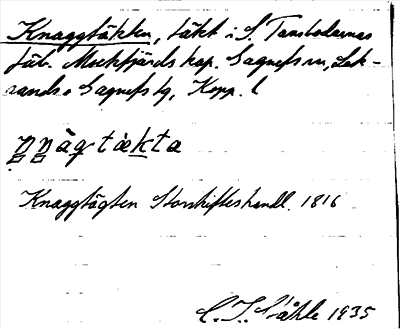 Knaggtäkten, täkt i S. Tansbodarnas
fäb. Mockfjärds kap. Gagnefs sn, Lek-
sands o Gagnefs tg, Kopp. l
n̥n̥àq tàkta
Knaggtägten Storskifteshandl. 1816
C. I. Ståhle 1935